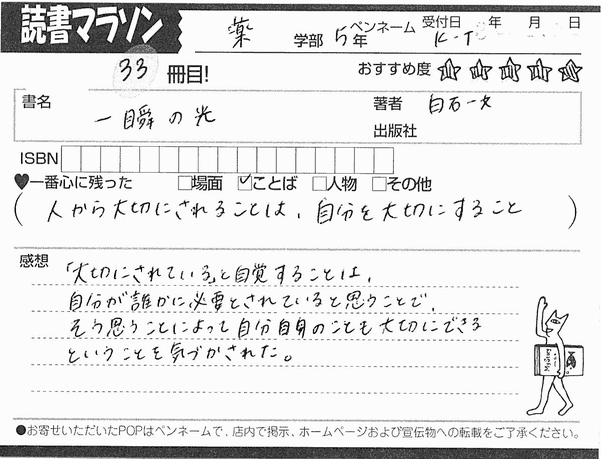 読書マラソン
薬 学部 5年 ペンネーム K-T 受付日 年 月 日
33 冊目! おすすめ度
書名 一瞬の光 著者 白石一文
出版社
ISBN
♥一番心に残った □場面 ☑ことば □人物 □その他
(人から大切にされることは、自分を大切にすること)
感想 「大切にされている」と自覚することは、
自分が誰かに必要とされていると思うことで、
そう思うことによって自分自身のことも大切にできる
ということを気づかされた。
●お寄せいただいたPOPはペンネームで、店内で掲示、ホームページおよび宣伝物への転載をご了承ください。